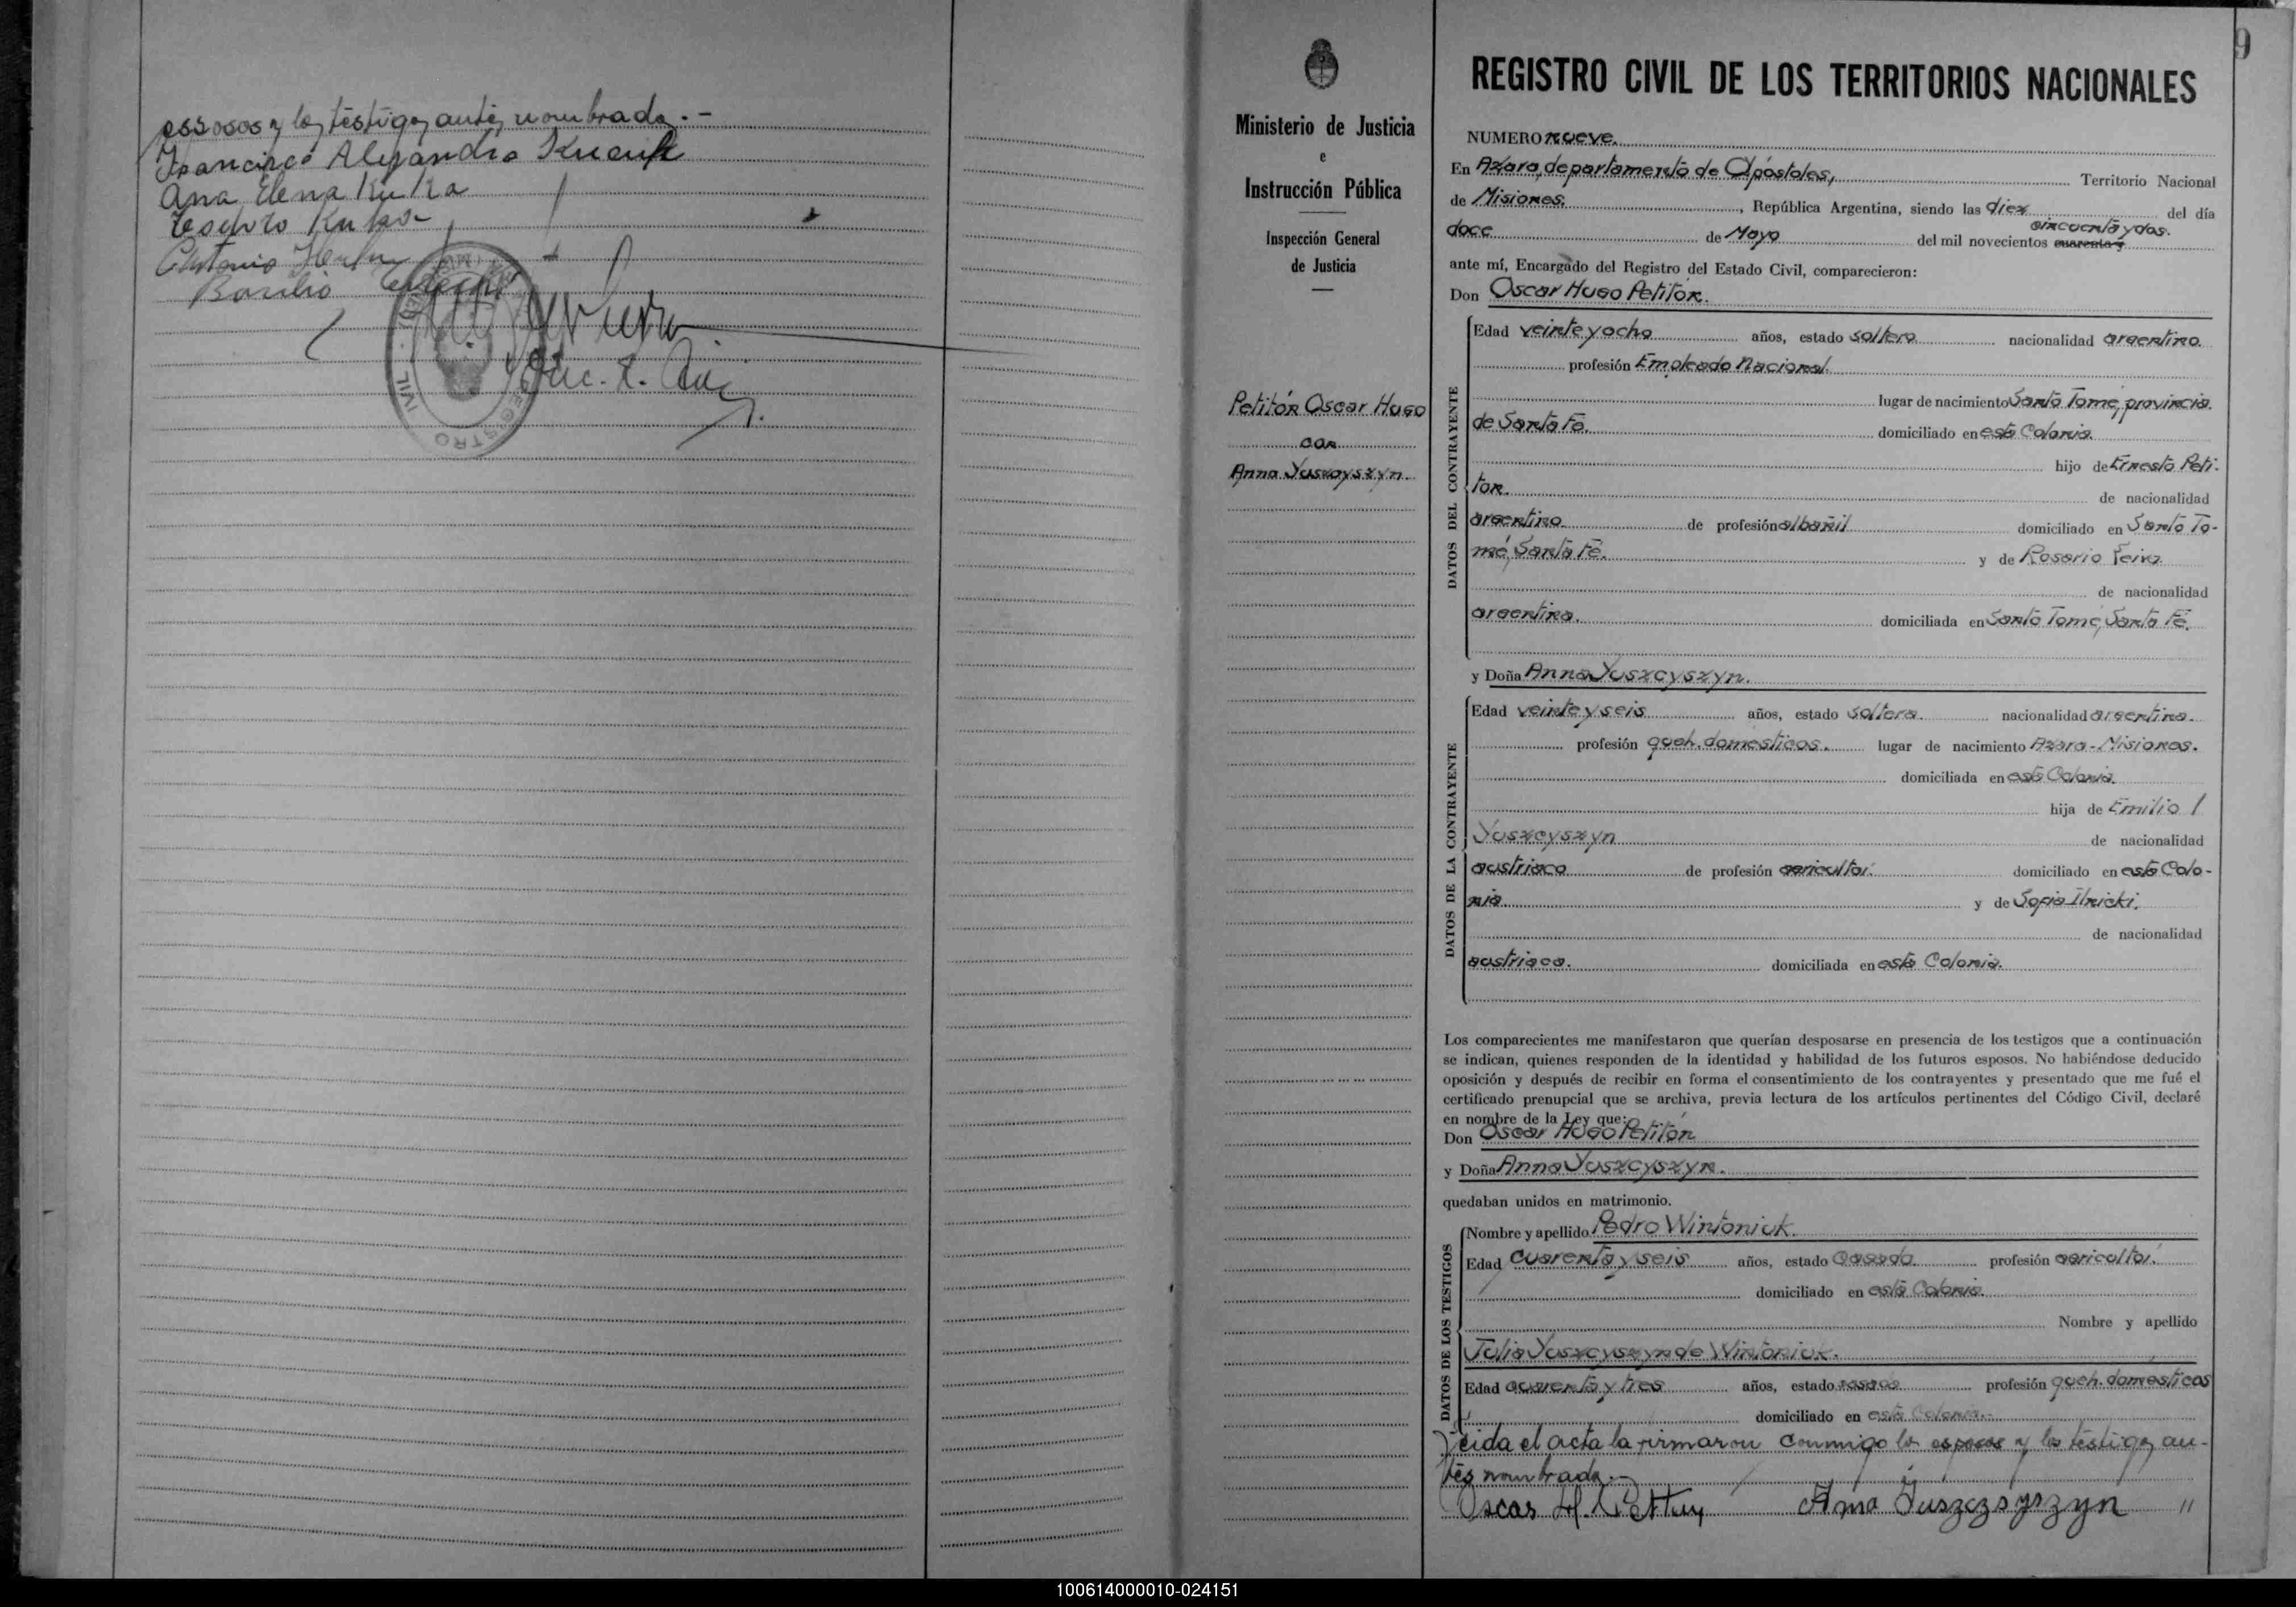 esposos y los testigos antes nombrados.-
Francisco Alejandro
Ana Elena Kuka
Teodoro Kuka
Antonio
Basilio
REGISTRO CIVIL
9
Ministerio de Justicia
e
Instrucción Pública
Inspección General
de Justicia
Petitón Oscar Hugo
con
Anna Yuszcyszyn.
REGISTRO CIVIL DE LOS TERRITORIOS NACIONALES
NUMERO nueve.
En Azara, departamento de Apóstoles, Territorio Nacional
de Misiones. , República Argentina, siendo las diez del día
cincuenta y dos.
doce de Mayo del mil novecientos cuarenta y
ante mí, Encargado del Registro del Estado Civil, comparecieron:
Don Oscar Hugo Petiton.
DATOS DEL CONTRAYENTE
Edad veinte y ocho años, estado soltero nacionalidad argentino.
profesión Empleado Nacional.
lugar de nacimiento Santo Tomé, provincia
de Santa Fe. domiciliado en esta Colonia.
hijo de Ernesto Peti-
ton. de nacionalidad
argentino de profesión albañil domiciliado en Santo To-
mé, Santa Fé. y de Rosario
de nacionalidad
argentina. domiciliada en Santo Tomé, Santa Fé.
y Doña Anna Yuszcyszyn.
DATOS DE LA CONTRAYENTE
Edad veinte y seis años, estado soltera. nacionalidad argentina.
profesión queh. domesticos. lugar de nacimiento Azara-Misiones.
domiciliada en esta Colonia.
hija de Emilio /
Yuszcyszyn de nacionalidad
austriaco de profesión agricultor. domiciliado en esta Colo-
nia. y de Sofia Ilnicki.
de nacionalidad
austriaca. domiciliada en esta Colonia.
Los comparecientes me manifestaron que querían desposarse en presencia de los testigos que a continuación
se indican, quienes responden de la identidad y habilidad de los futuros esposos. No habiéndose deducido
oposición y después de recibir en forma el consentimiento de los contrayentes y presentado que me fué el
certificado prenupcial que se archiva, previa lectura de los artículos pertinentes del Código Civil, declaré
en nombre de la Ley que:
Don Oscar Hugo Petitón
y Doña Anna Yuszcyszyn.
quedaban unidos en matrimonio.
DATOS DE LOS TESTIGOS
Nombre y apellido Pedro Wintoniuk.
Edad cuarenta y seis años, estado casado profesión agricultor.
domiciliado en esta Colonia.
Nombre y apellido
Julia Yuszcyszyn de Wintoniuk.
Edad cuarenta y tres años, estado casada profesión queh. domésticos
domiciliado en esta Colonia.-
Leida el acta la firmaron conmigo los esposos y los testigos an-
tes nombrados.-
Oscar H. Petiton Ana Juszczyszyn "
100614000010-024151